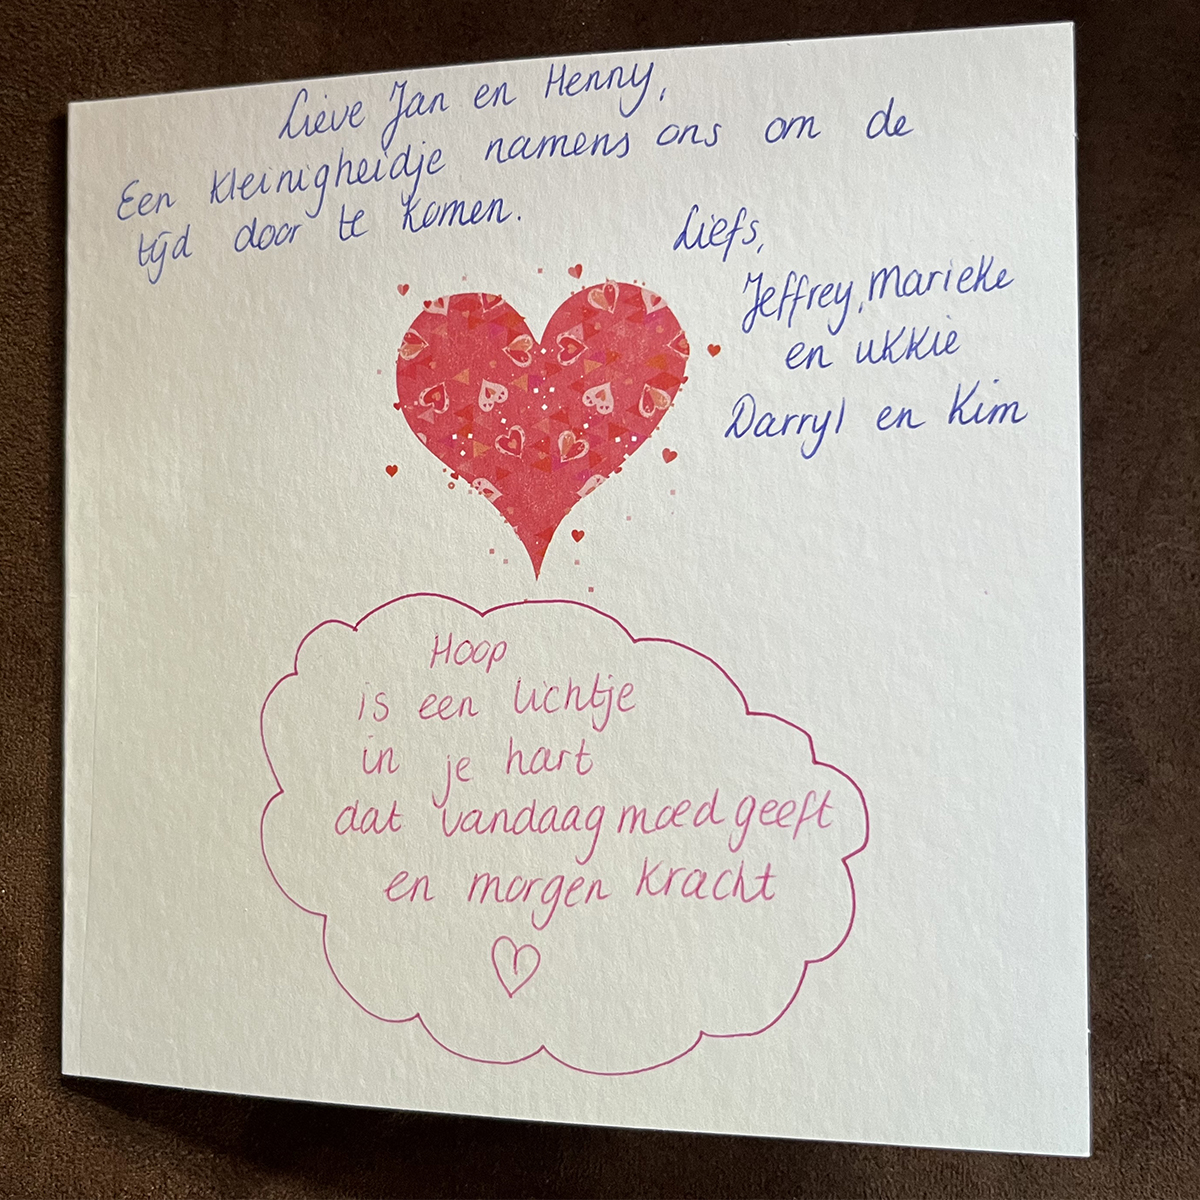 Lieve Jan en Henny,
Een kleinigheidje namens ons om de
tijd door te komen.
Liefs,
Jeffrey, Marieke
en ukkie
Darryl en Kim
Hoop
is een lichtje
in je hart
dat vandaag moed geeft
en morgen kracht